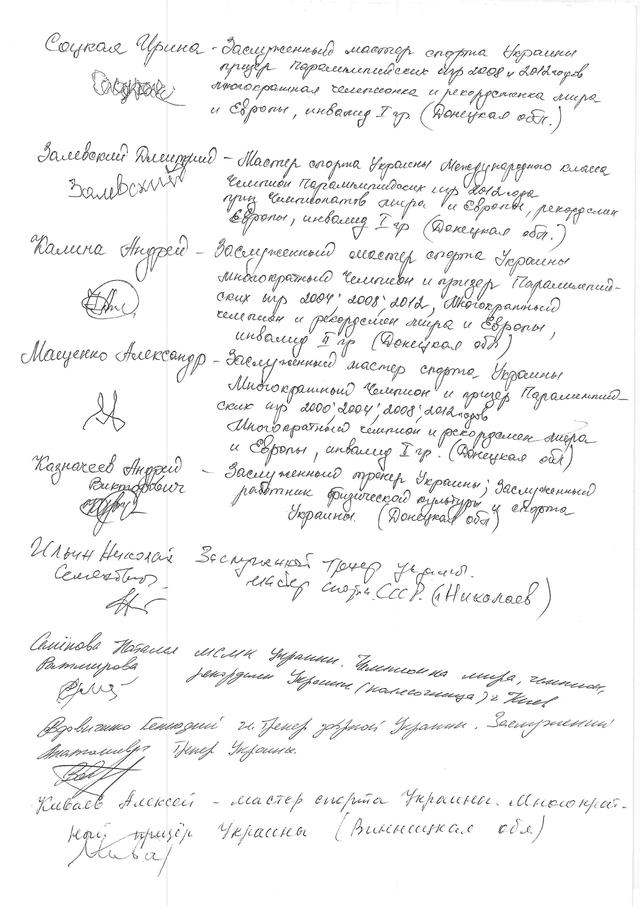 Соцкая Ирина - Заслуженный мастер спорта Украины
призер Паралимпийских игр 2008 и 2012 годов
многократная чемпионка и рекордсменка мира
и Европы, инвалид I гр (Донецкая обл.)
Залевский Дмитрий - Мастер спорта Украины Международного класса
Залевский
Чемпион Паралимпийских игр 2012 года
приз Чемпионатов мира и Европы, рекордсмен
Европы, инвалид I гр (Донецкая обл.)
Калина Андрей - Заслуженный мастер спорта Украины
многократный чемпион и призер Паралимпий-
ских игр 2004' 2008' 2012, Многократный
чемпион и рекордсмен мира и Европы,
инвалид II гр (Донецкая обл)
Мащенко Александр - Заслуженный мастер спорта Украины
Многократный Чемпион и призер Паралимпий-
ских игр 2000' 2004' 2008' 2012 годов
Многократный чемпион и рекордсмен мира
и Европы, инвалид I гр. (Донецкая обл)
Казначеев Андрей - Заслуженный тренер Украины; Заслуженный
Викторович работник физической культуры и спорта
Украины (Донецкая обл)
Ильин Николай Заслуженный Тренер Украины.
мастер спорта СССР. (г Николаев)
Наталия мсмк Украины. Чемпионка мира,
Ратмирова Украины (колясочница) г Киев
Вдовиченко Геннадий Тренер Украины. Заслуженный
Анатольевич Тренер Украины.
Киваев Алексей - мастер спорта Украины. Многократ-
ный призёр Украины (Винницкая обл)